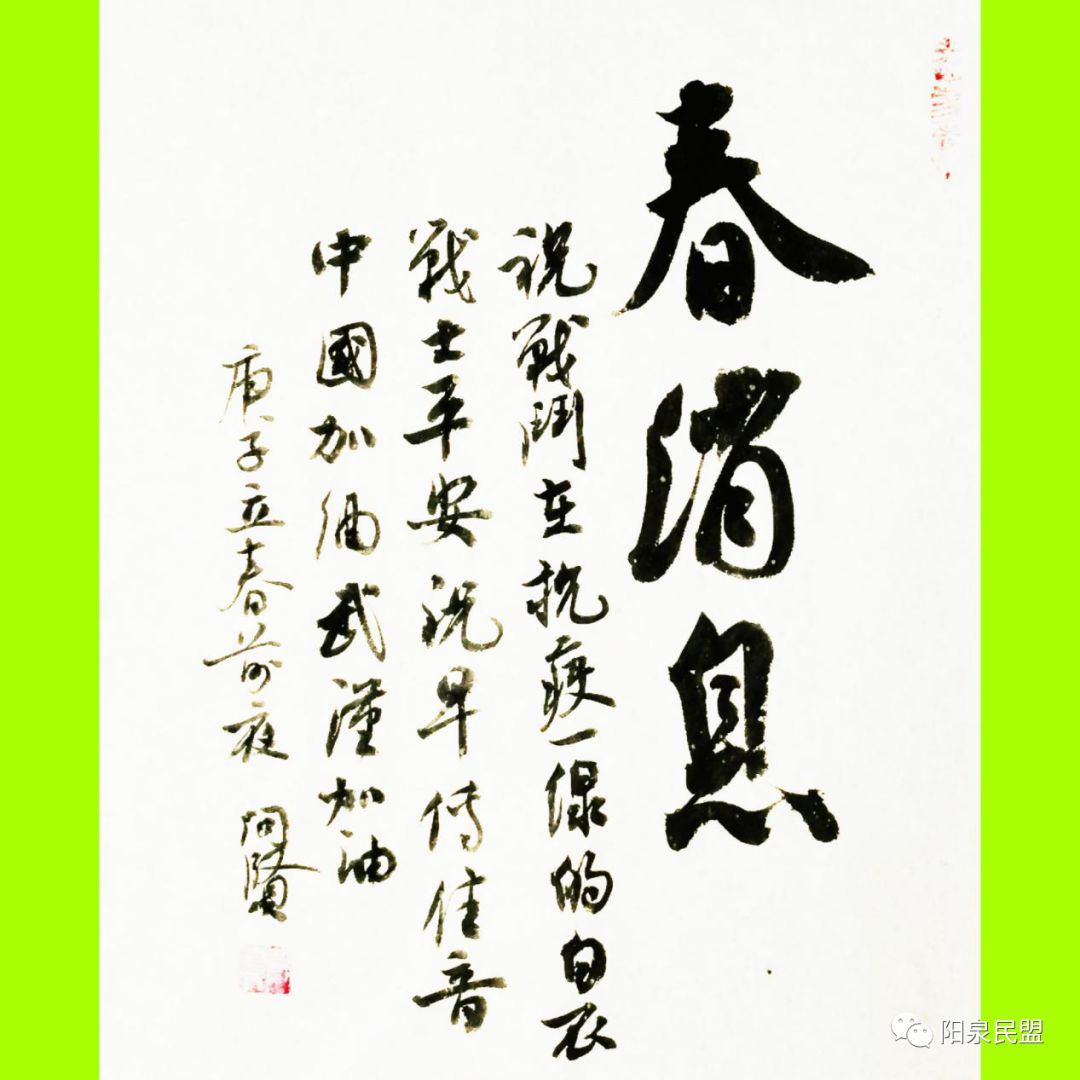 春消息
祝戰鬥在抗疫一線的白衣
戰士平安祝早傳佳音
中國加油武漢加油
庚子立春前夜 問賢
阳泉民盟